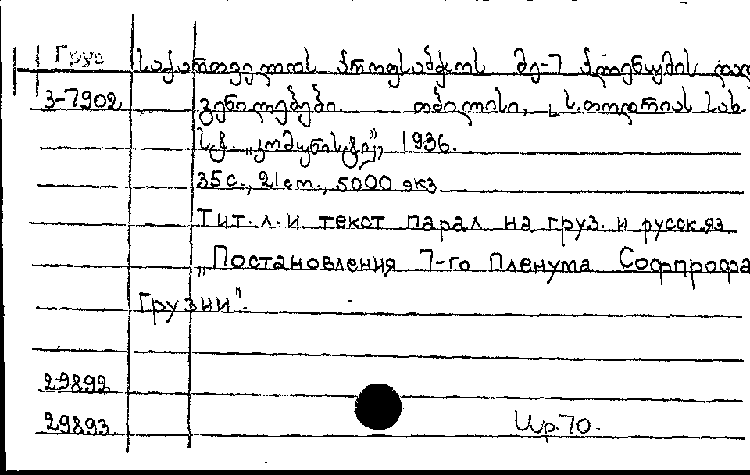 Груз საქართველოს პროფსაბჭოს მე-7 პლენუმის
3-7902 გენილებები. თბილისი, ს. თოდრიას სახ.
სტ. „კომუნისტი", 1936.
35 с., 21 см., 5000 экз
Тит. л. и текст парал на груз. и русск. яз
„Постановления 7-го Пленума Совпрофа
Грузии".
29892
29893 Ир. 70.